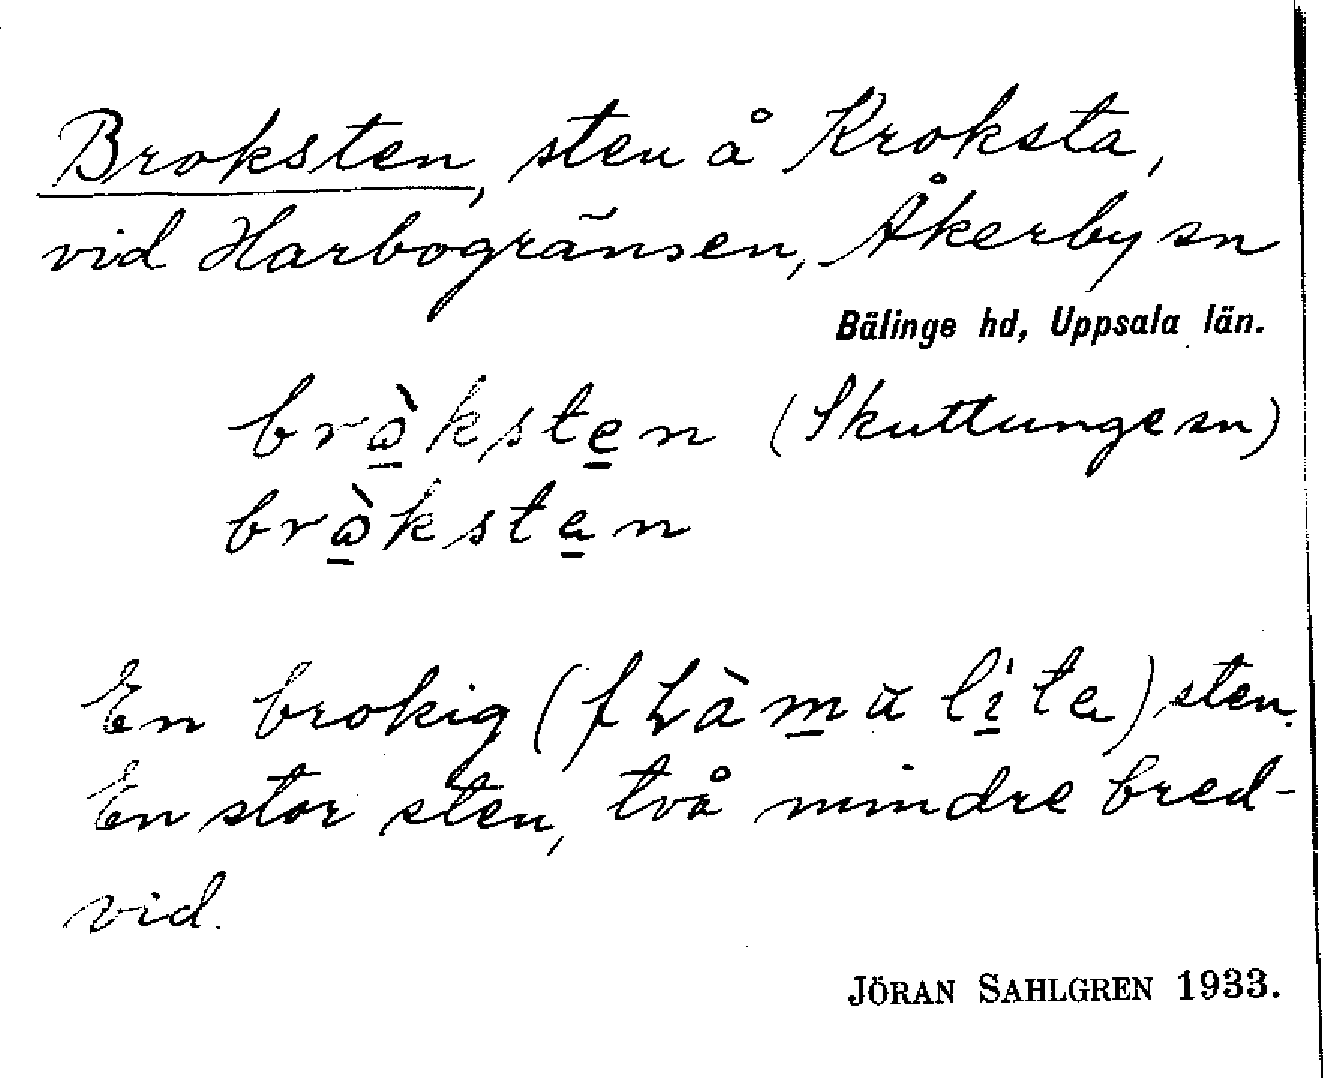 Broksten, sten å Kroksta,
vid Harbogränsen, Åkerby sn
Bälinge hd, Uppsala län.
bròksten (Skuttunge sn)
bròkstan
En brokig (fLàmulita) sten.
En stor sten, två mindre bred-
vid.
JÖRAN SAHLGREN 1933.